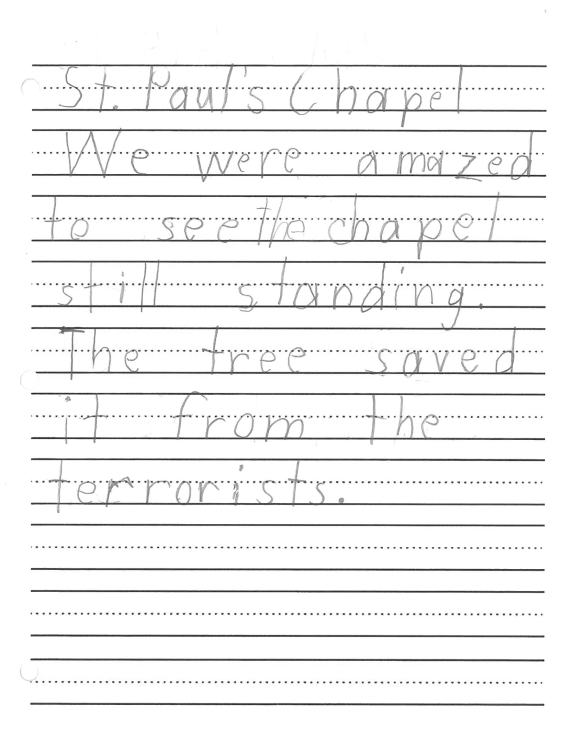 St. Paul's Chapel
We were amazed
to see the chapel
still standing.
The tree saved
it from the
terrorists.